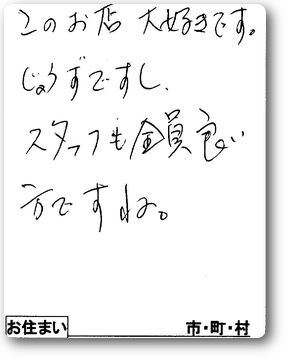 このお店 大好きです。
じょうずですし、
スタッフも全員良い
方ですね。
お住まい 市・町・村